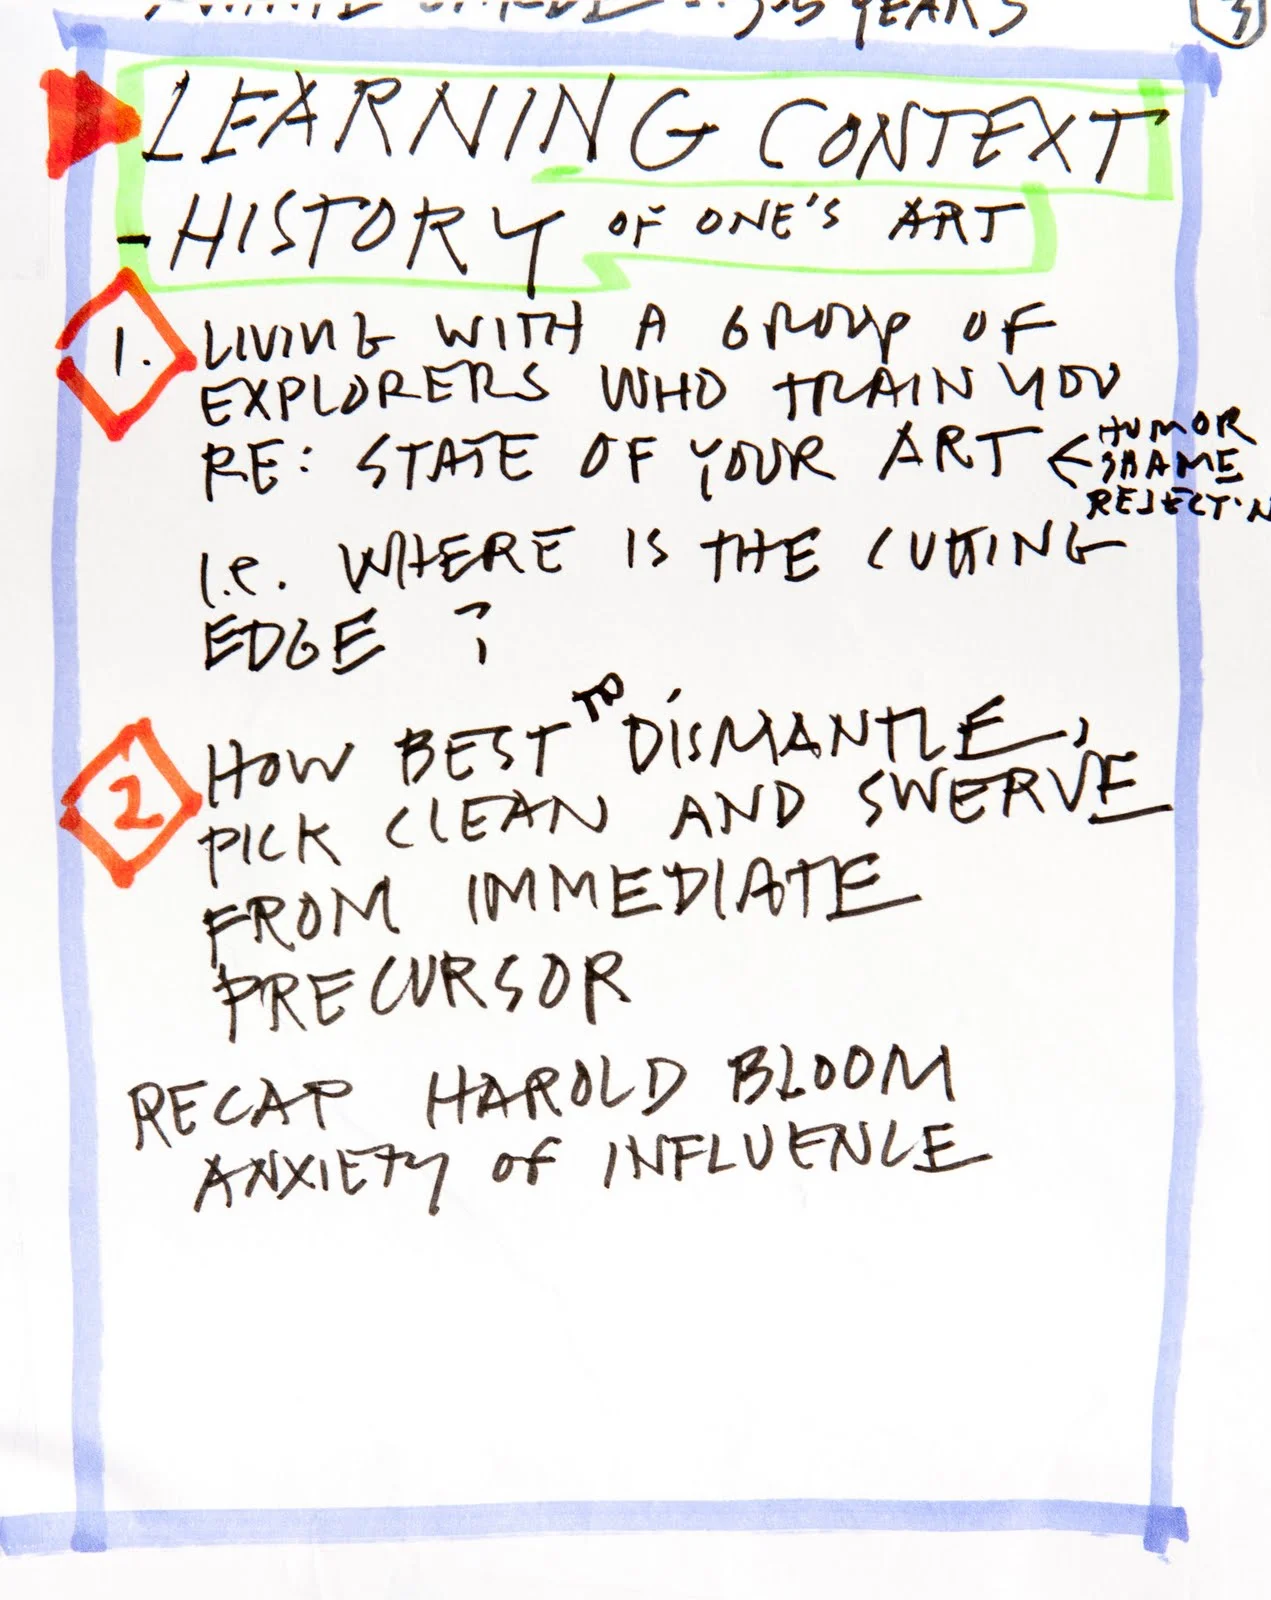 YEARS
3
LEARNING CONTEXT
- HISTORY OF ONE'S ART
1. LIVING WITH A GROUP OF
EXPLORERS WHO TRAIN YOU
RE: STATE OF YOUR ART ← HUMOR
SHAME
REJECT'N
i.e. WHERE IS THE CUTTING
EDGE ?
2 HOW BEST TO DISMANTLE,
PICK CLEAN AND SWERVE
FROM IMMEDIATE
PRECURSOR
RECAP HAROLD BLOOM
ANXIETY OF INFLUENCE